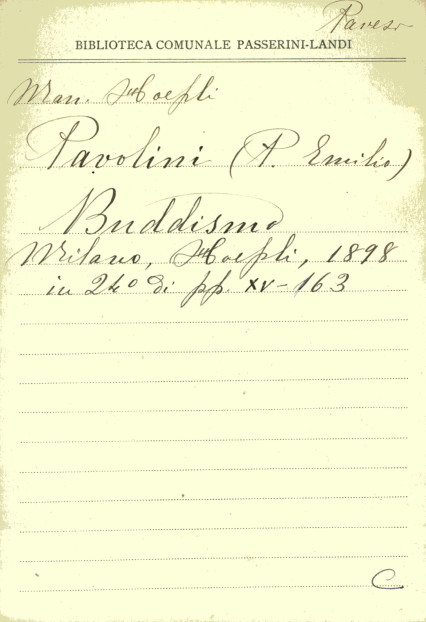 Pavesi
BIBLIOTECA COMUNALE PASSERINI-LANDI
Man. Hoepli
Pavolini (P. Emilio)
Buddismo
Milano, Hoepli, 1898
in 24º di pp. XV-163
C